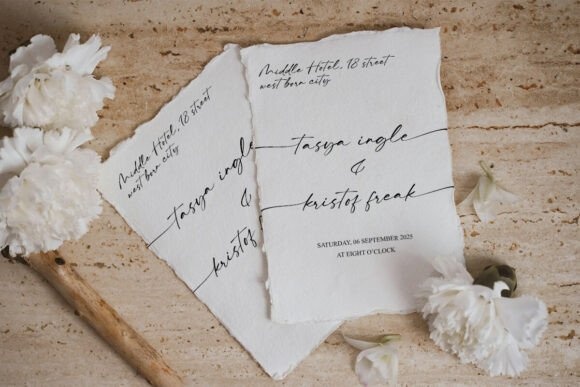 Middle Hotel, 18 street
west born city
tasya ingle
&
kristof freak
SATURDAY, 06 SEPTEMBER 2025
AT EIGHT O'CLOCK
Middle Hotel, 18 street
west born city
tasya ingle
&
kristof